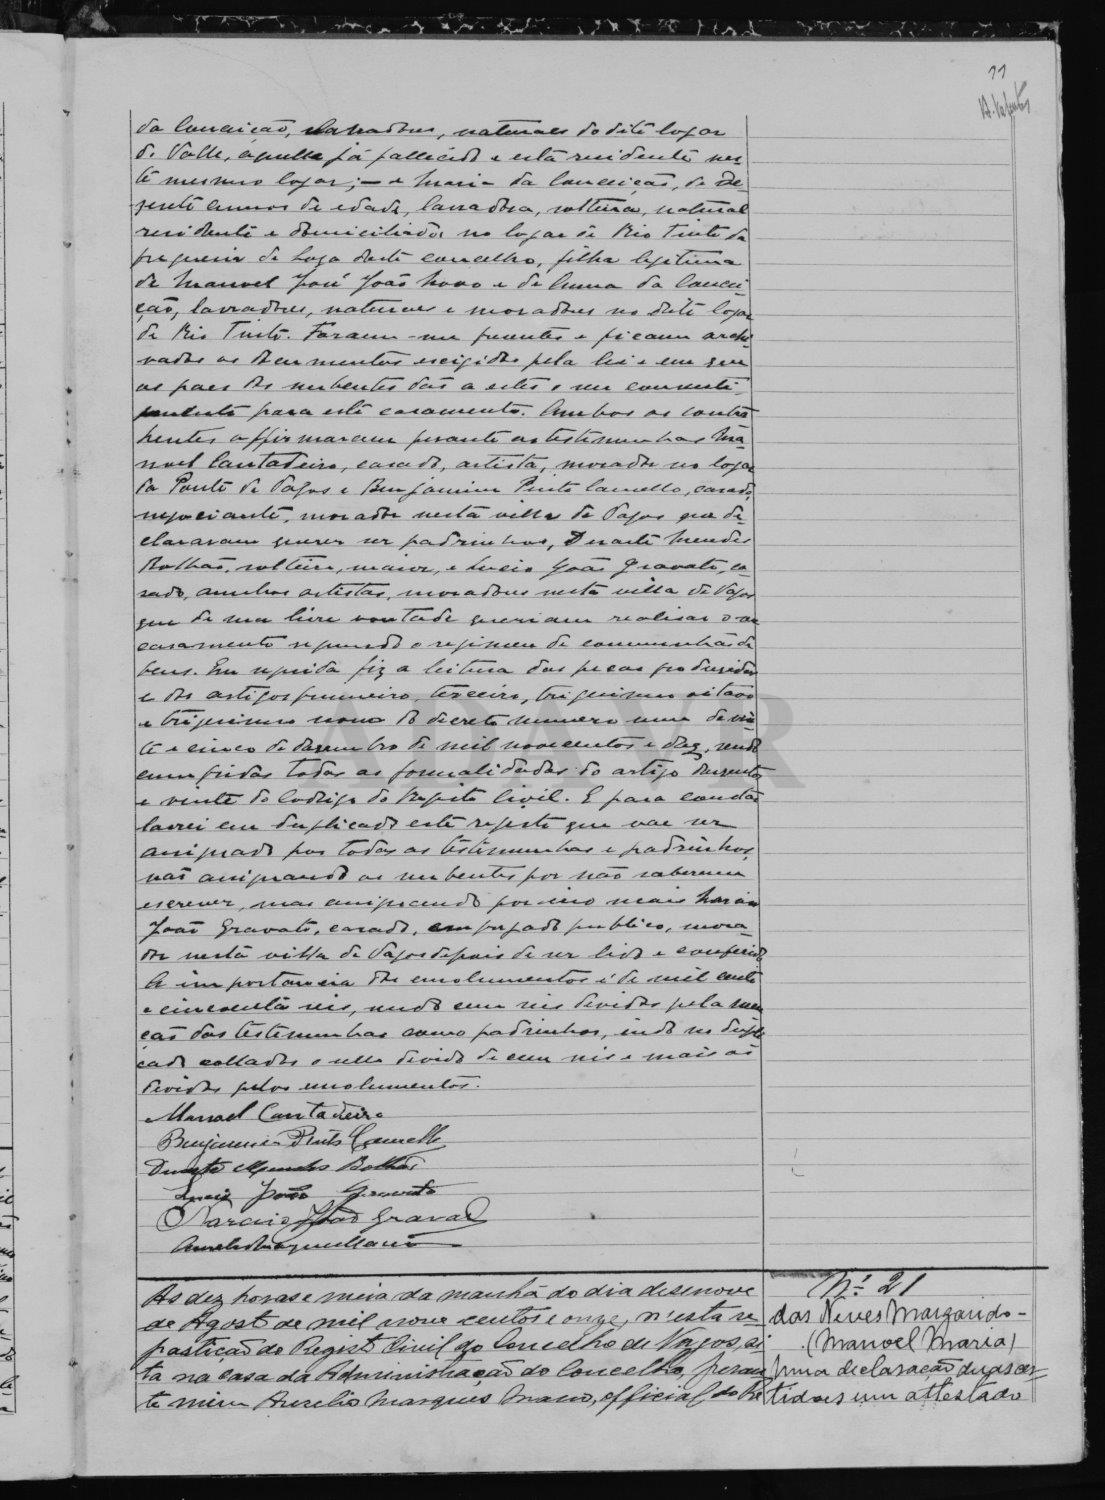 11
da Conceição, lavradores, naturaes do dito logar
de Valle, aquelle já fallecido e esta residente nes-
te mesmo logar; — e Maria da Conceição, de De-
zesete annos de edade, lavradora, solteira, natural
residente e domiciliada no logar de Rio Tinto da
freguesia de Soza deste concelho, filha legitima
de Manoel José João Novo e de Anna da Concei-
ção, lavradores, naturaes e moradores no dito logar
de Rio Tinto. Foram-me presentes e ficam archi-
vados os documentos exigidos pela lei e em que
os paes dos nubentes dão a estes o seu consenti-
mento para este casamento. Ambos os contra-
hentes affirmaram perante as testemunhas Ma-
noel Cantadeiro, casado, artista, morador no logar
da Ponte de Vagos e Benjamim Pinto Camello, casado,
negociante, morador nesta villa de Vagos que de-
clararam querer ser padrinhos, Duarte Mendes
Bolhão, solteiro, maior, e Lucio João Gravato, ca-
sado, ambos artistas, moradores nesta villa de Vagos
que de sua livre vontade queriam realisar o seu
casamento segundo o regimen de communhão de
bens. Em seguida fiz a leitura das peças produzidas
e dos artigos primeiro, terceiro, trigesimo oitavo
e trigesimo nono do decreto numero um de vin-
te e cinco de dezembro de mil novecentos e dez, sendo
cumpridas todas as formalidades do artigo duzentos
e vinte do Codigo do Registo Civil. E para constar
lavrei em duplicado este registo que vae ser
assignado por todas as testemunhas e padrinhos,
não assignando os nubentes por não saberem
escrever, mas assignando por isso mais Narciso
João Gravato, casado, empregado publico, mora-
dor nesta villa de Vagos depois de ser lido e conferido
A importancia dos emolumentos é de mil cento
e cincoenta reis, sendo cem reis devidos pela
das testemunhas como padrinhos, indo no dupli-
cado collados o sello devido de cem reis e mais os
devidos pelos emolumentos.
Manoel Cantadeiro
Benjamim Pinto Camello
Duarte Mendes Bolhão
Lucio João Gravato
Narciso João Gravato
Aurelio Marques Mano
Ás dez horas e meia da manhã do dia desenove
de Agosto de mil nove centos e onze, n'esta re-
partição do Registo Civil do Concelho de Vagos, si-
ta na casa da Administração do Concelho, peran-
te mim Aurelio Marques Mano, official do Re
Nº 21
das Neves Margarido-
(Manoel Maria)
Uma declaração duas cer-
tidões um attestado
ADAVR